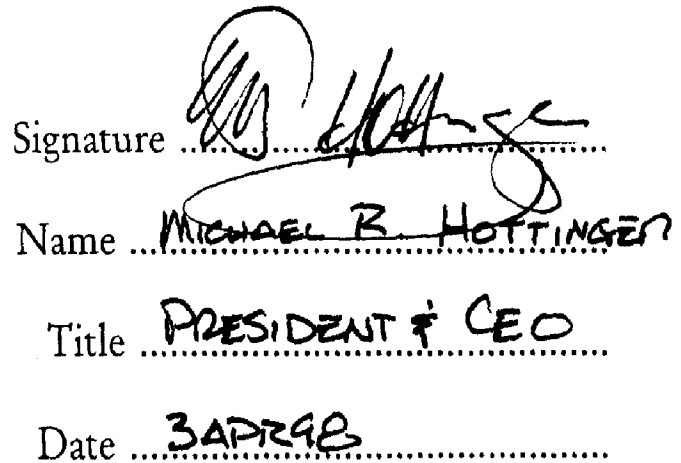 Signature Hottinger
Name MICHAEL R. HOTTINGER
Title PRESIDENT & CEO
Date 3APR98